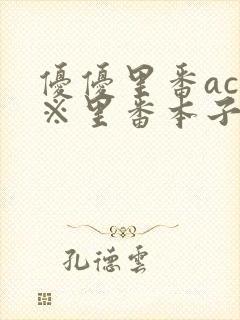 優優里番ac
※里番本子
孔德雲